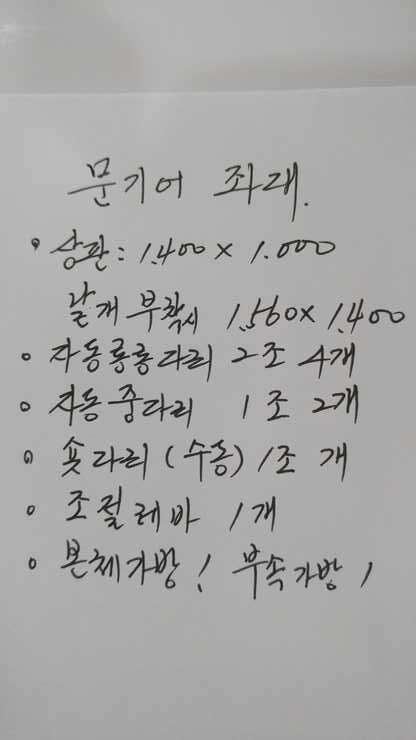 문기어 좌대.
• 상판: 1.400 × 1.000
날개 부착시 1.560 × 1.400
• 자동롱롱다리 2조 4개
• 자동중다리 1조 2개
• 숏다리 (수동) 1조 개
• 조절레바 1개
• 본체가방 1 부속가방 1